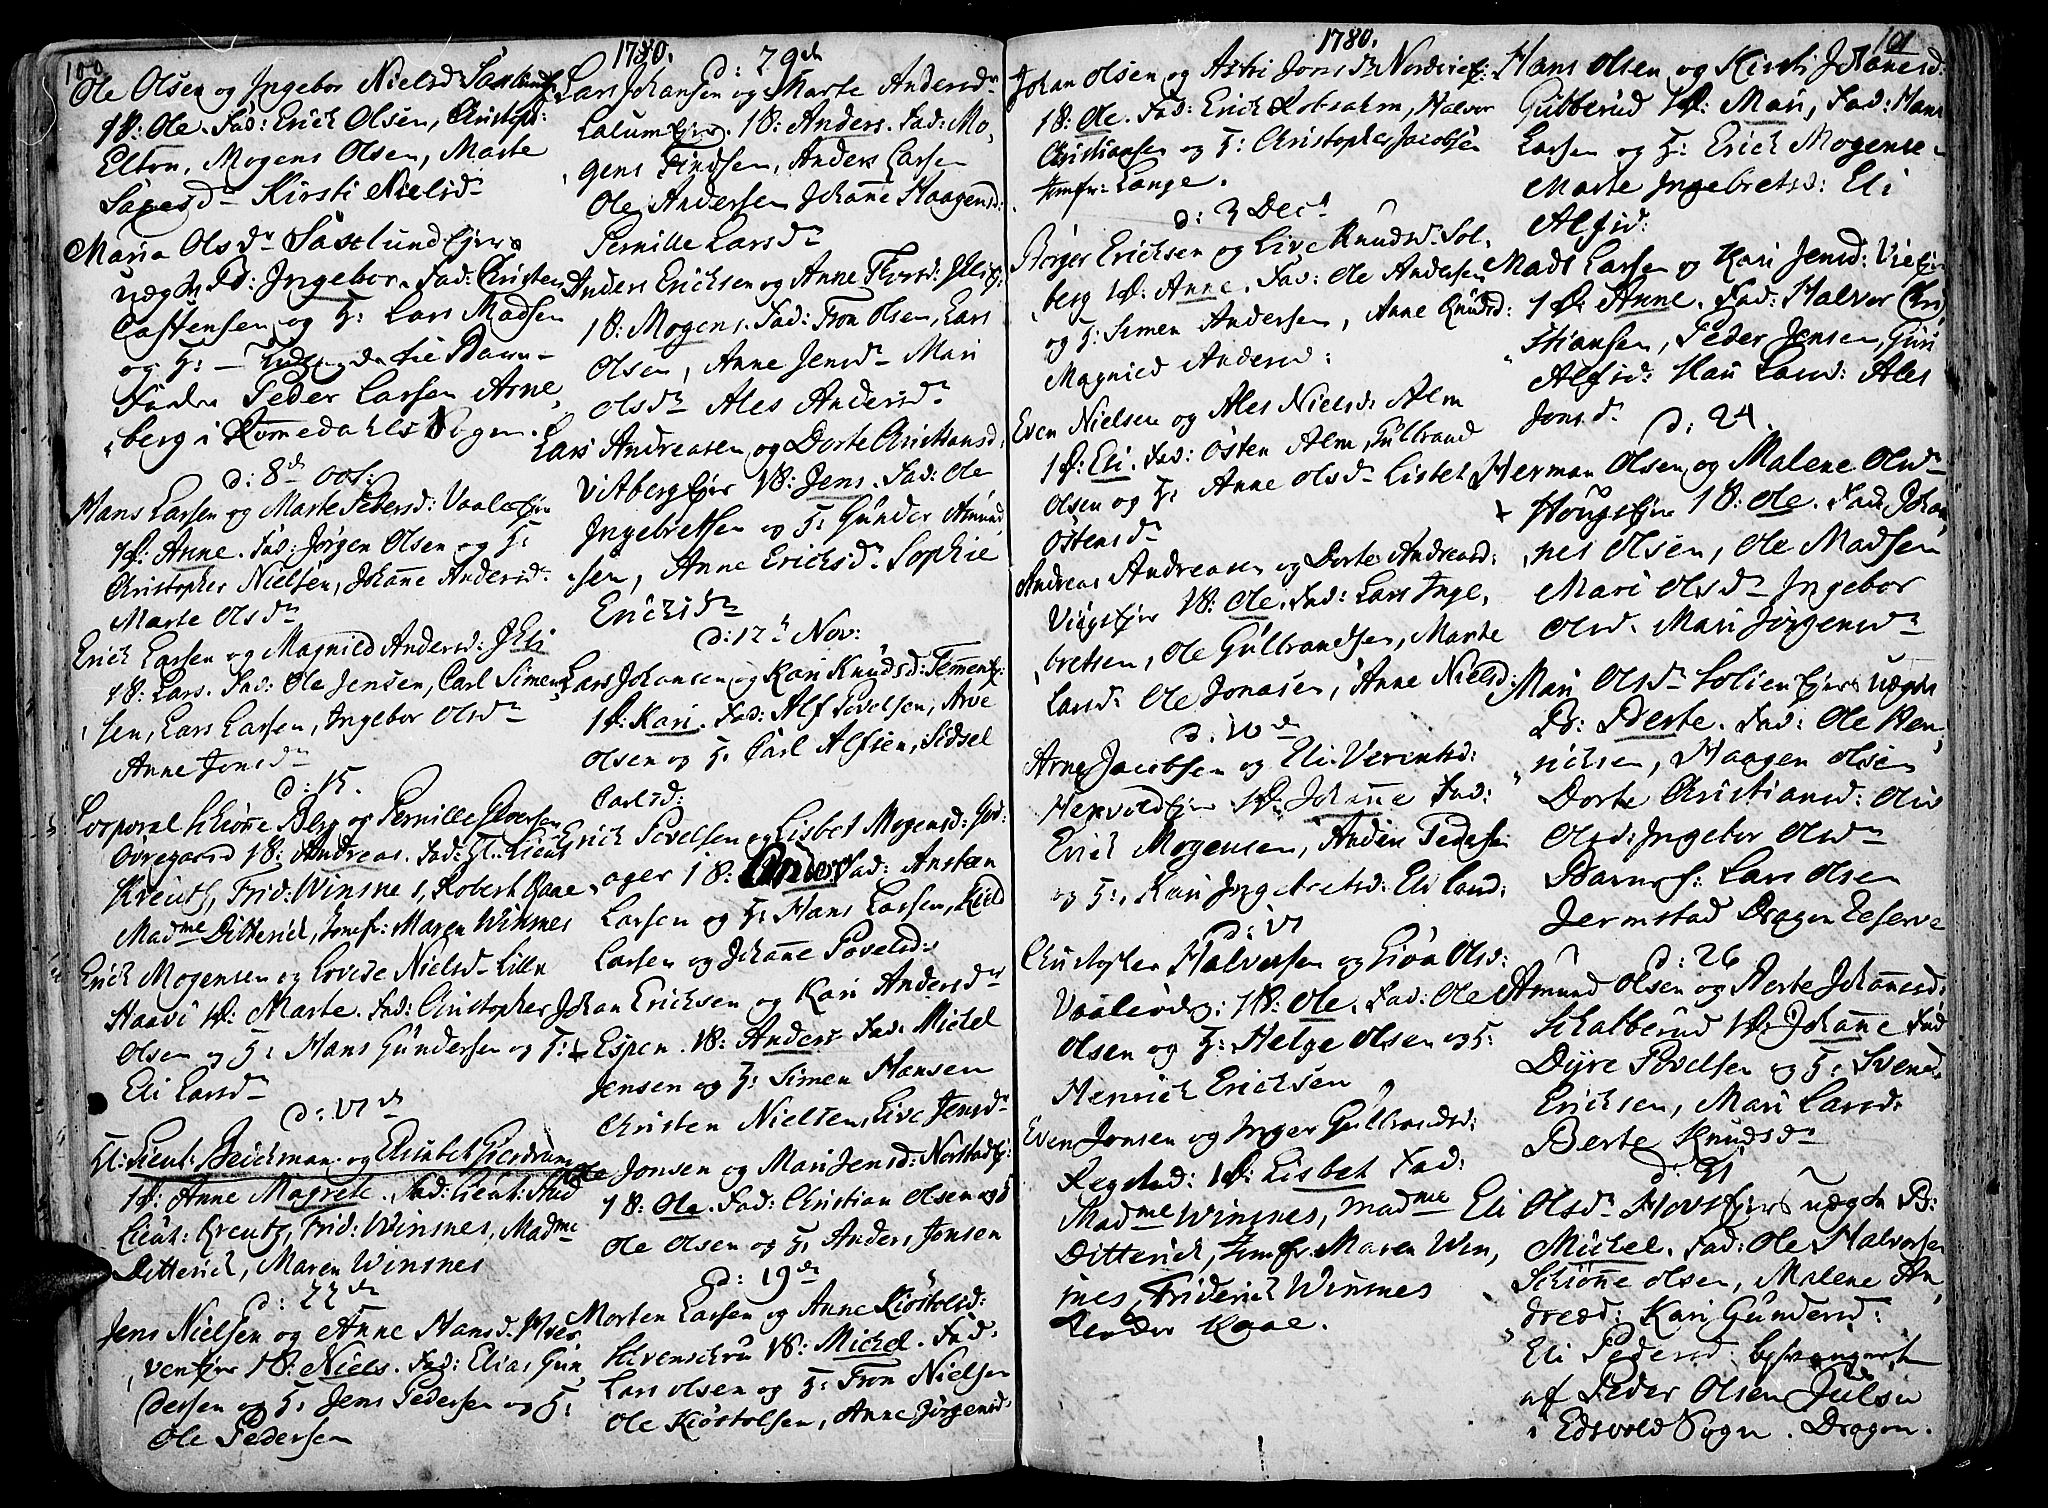 100
1780.
Ole Olsen og Ingebor Nielsd.
1 B: Ole. Fad: Erich Olsen, Christoph:
Elton, Mogens Olsen, Marte
Kirsti Nielsd
Maria Olsd Saxlund Ejer
uægte B: Ingebor. Fad: Christen
Castensen og H: Lars Madsen
og H: - Barn-
Fader Peder Larsen Arne,
berg i Rommedahls Sogn.
d: 8de oct:
Hans Larsen og Marte Pedersd: Vaale Ejer
1 P: Anne. Fad: Jørgen Olsen og H:
Christopher Nielsen, Johanne Andersd.
Marte Olsd
Erich Larsen og Magnild Andersd:
1 B: Lars. Fad: Ole Jensen, Carl Simen
sen, Lars Larsen, Ingebor Olsd
Anne Jonsd
d: 15.
Corporal Schiønne Berg og Pernille Iversen
Øvregaard 1 B: Andreas. Fad: Hl: Lieut
Kreutz, Frid: Winsnes, Robert Kaae
Madme Ditterich, Jomfr: Maren Winsnes
Erich Mogensen og Lovise Nielsd Lille
Haavi 1 P: Marte. Fad: Christopher
Olsen og H: Hans Gundersen og H:
Eli Larsd
d: 17de
Hl: Lieut: Beichman og Elisabet Gierdrum
1 P: Anne Magrete. Fad: Lieut:
Lieut: Kreutz, Frid: Winsnes, Madme
Ditterich, Maren Winsnes
d: 22de
Jens Nielsen og Anne Hansd.
ven Ejer 1 B: Niels. Fad: Elias Gun
dersen og H: Jens Pedersen og H:
Ole Pedersen
d: 29de
Lars Johansen og Marte Andersd
Lalum Ejer. 1 B: Anders. Fad: Mo,
gens Findsen, Anders Larsen
Ole Andersen Johanne Haagensd:
Pernille Larsd
Anders Erichsen og Anne Thorsd:
1 B: Mogens. Fad: Tron Olsen, Lars
Olsen, Anne Jensd Mari
Olsd Ales Andersd
Lars Andreasen og Dorte Christiansd,
Vitberg Ejer 1 B: Jens. Fad: Ole
Ingebretsen og H: Gunder Amund
sen, Anne Erichsd Sophie
Erichsd
d: 12te Nov:
Lars Johansen og Kari Knudsd: Tommen Ej:
1 P: Kari. Fad: Alf Povelsen, Arve
Olsen og H: Carl Alfsen, Sidsel
Carlsd:
Erich Povelsen og Lisbet Mogensd:
ager 1 B: Anders Fad: Ansten
Larsen og H: Hans Larsen, Kield
Larsen og Johanne Povelsd:
Johan Erichsen og Kari Andersd
Espen. 1 B: Anders Fad: Michel
Jensen og H: Simen Hansen
Christen Nielsen, Live Jensd
Ole Jonsen og Mari Jensd: Norstad Ej:
1 B: Ole. Fad: Christian Olsen og H
Ole Olsen og H: Anders Jonsen
d: 19de
Morten Larsen og Anne Kiøstolsd:
1 B: Michel. Fad:
Lars Olsen og H: Tron Nielsen
Ole Kiøstolsen, Anne Jørgensd.
1780.
101
Johan Olsen og Astri Jonsd
1 B: Ole. Fad: Erich Kobsahm, Halvor
Christiansen og H: Christopher Jacobsen
Jomfr: Lange.
d: 3 Decb
Børger Erichsen og Live Knudsd. Sol,
berg 1 P: Anne. Fad: Ole Andersen
og H: Simen Andersen, Anne Knudsd:
Magnild Andersd:
Even Nielsen og Ales Nielsd: Alm
1 P: Eli. Fad: Østen Alm, Gulbrand
Olsen og H: Anne Olsd Lisbet
Østensd
Andreas Andreasen og Dorte Andreasd:
Viigs Ejer 1 B: Ole. Fad: Lars Inge,
bretsen, Ole Gulbrandsen, Marte
Larsd Ole Jonasen, Anne Nielsd:
d. 10de
Arne Jacobsen og Eli Verentsd:
1 P: Johanne Fad:
Erich Mogensen, Anders Pedersen
og H:, Kari Ingebretsd: Eli Larsd:
d: 17
Christopher Halvorsen og Olsd:
1 B: Ole. Fad: Ole
Olsen og H: Helge Olsen og H:
Henrich Erichsen
Even Jonsen og Inger Gulbrandsd:
1 P: Lisbet Fad:
Madme Winsnes, Madme
Ditterich, Jomfr: Maren Win,
snes, Friderich Winsnes
Kaae.
Hans Olsen og Kirsti Johanesd:
Gubberud 1 P: Mari, Fad: Hans
Larsen og H: Erich Mogensen
Marte Ingebretsd: Eli
Alfsd:
Mads Larsen og Kari Jensd: Vie Ejer
1 P: Anne. Fad: Halvor Chri
stiansen, Peder Jensen, Guri
Alfsd: Kari Larsd: Ales
Jonsd
d: 24.
Herman Olsen og Malene Olsd
Hougs Ejer 1 B: Ole. Fad: Johan,
nes Olsen, Ole Madsen
Mari Olsd Ingebor
Olsd. Mari Jørgensd
Mari Olsd Solien Ejer uægte
B: Berte. Fad: Ole Hen,
richsen, Haagen Olsen
Dorte Christiansd: Oliv
Olsd: Ingebor Olsd
Barnef: Lars Olsen
Jermstad Dragon Reserve
d: 26
Amund Olsen og Marte Johannesd:
Schatberud 1 P: Johanne Fad
Dyre Povelsen og H: Svend
Erichsen, Mari Larsd:
Berte Knudsd
d: 31
Eli Olsd Hovs Ejer uægte B:
Michel. Fad: Ole Halvorsen
Schiønne Olsen, Malene An,
dread: Kari Gundersd:
Eli Pedersd: besvangret
af Peder Olsen Julsen
i Edsvold Sogn. Dragon.